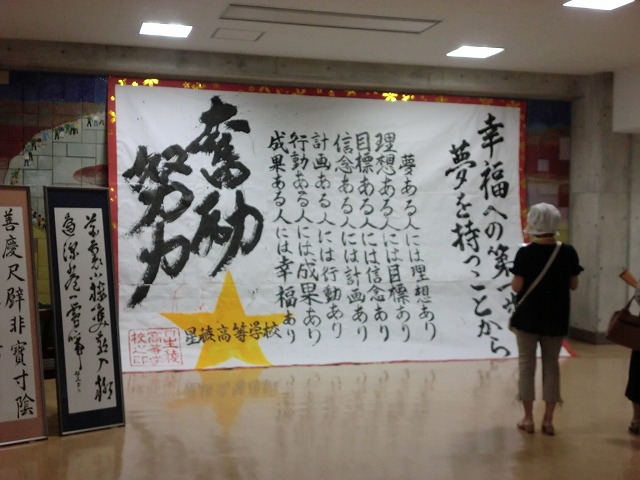 幸福への第一歩
夢を持つことから
夢ある人には理想あり
理想ある人には目標あり
目標ある人には信念あり
信念ある人には計画あり
計画ある人には行動あり
行動ある人には成果あり
成果ある人には幸福あり
奮励
努力
星陵高等学校
善慶尺璧非寶寸陰